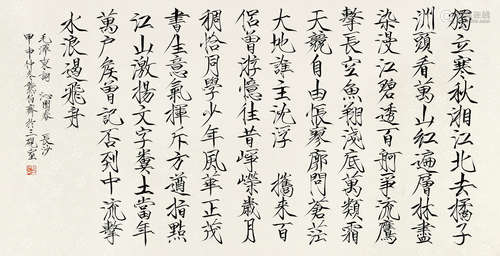 獨立寒秋湘江北去橘子
洲頭看萬山紅遍層林盡
染漫江碧透百舸爭流鷹
擊長空魚翔淺底萬類霜
天競自由悵寥廓問蒼茫
大地誰主沈浮 攜來百
侶曾游憶往昔崢嶸歲月
稠恰同學少年風華正茂
書生意氣揮斥方遒指點
江山激揚文字糞土當年
萬戶矦曾記否到中流擊
水浪遏飛舟
毛澤東詞 沁園春 長沙
甲申仲冬